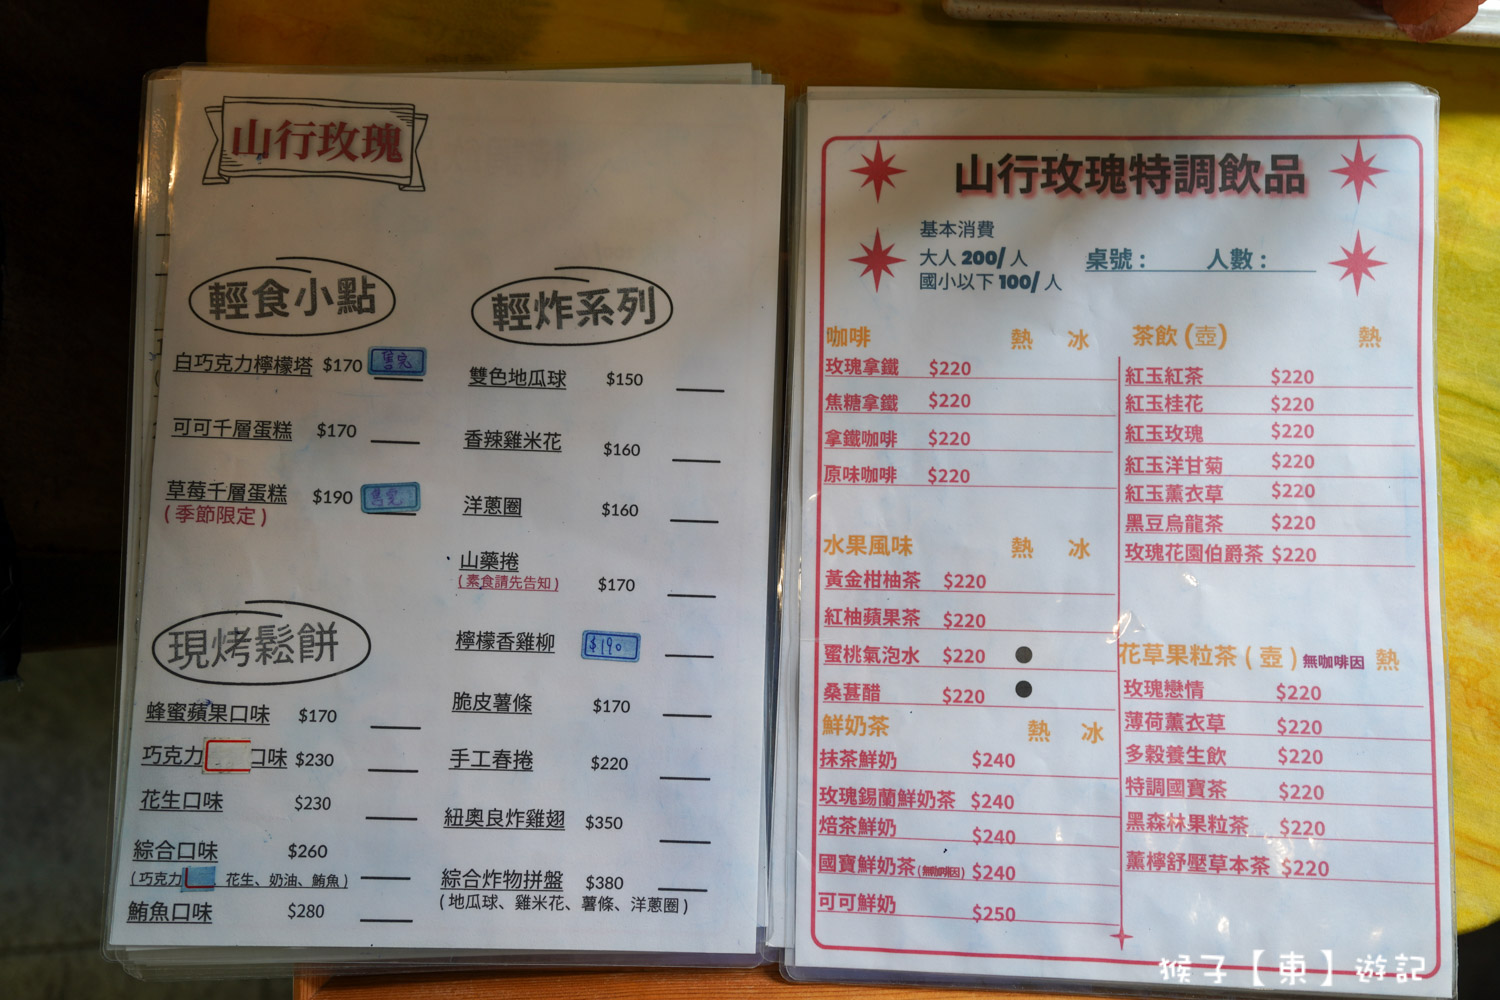 山行玫瑰
輕食小點
白巧克力檸檬塔 $170 售完
可可千層蛋糕 $170
草莓千層蛋糕 $190 售完
(季節限定)
現烤鬆餅
蜂蜜蘋果口味 $170
巧克力 口味 $230
花生口味 $230
綜合口味 $260
(巧克力 花生、奶油、鮪魚)
鮪魚口味 $280
輕炸系列
雙色地瓜球 $150
香辣雞米花 $160
洋蔥圈 $160
山藥捲
(素食請先告知) $170
檸檬香雞柳 $190
脆皮薯條 $170
手工春捲 $220
紐奧良炸雞翅 $350
綜合炸物拼盤 $380
(地瓜球、雞米花、薯條、洋蔥圈)
山行玫瑰特調飲品
基本消費
大人 200/ 人
國小以下 100/ 人
桌號: 人數:
咖啡 熱 冰
玫瑰拿鐵 $220
焦糖拿鐵 $220
拿鐵咖啡 $220
原味咖啡 $220
水果風味 熱 冰
黃金柑柚茶 $220
紅柚蘋果茶 $220
蜜桃氣泡水 $220 ●
桑葚醋 $220 ●
鮮奶茶 熱 冰
抹茶鮮奶 $240
玫瑰錫蘭鮮奶茶 $240
焙茶鮮奶 $240
國寶鮮奶茶(無咖啡因) $240
可可鮮奶 $250
茶飲 (壺) 熱
紅玉紅茶 $220
紅玉桂花 $220
紅玉玫瑰 $220
紅玉洋甘菊 $220
紅玉薰衣草 $220
黑豆烏龍茶 $220
玫瑰花園伯爵茶 $220
花草果粒茶 (壺) 無咖啡因 熱
玫瑰戀情 $220
薄荷薰衣草 $220
多穀養生飲 $220
特調國寶茶 $220
黑森林果粒茶 $220
薰檸舒壓草本茶 $220
猴子【東】遊記